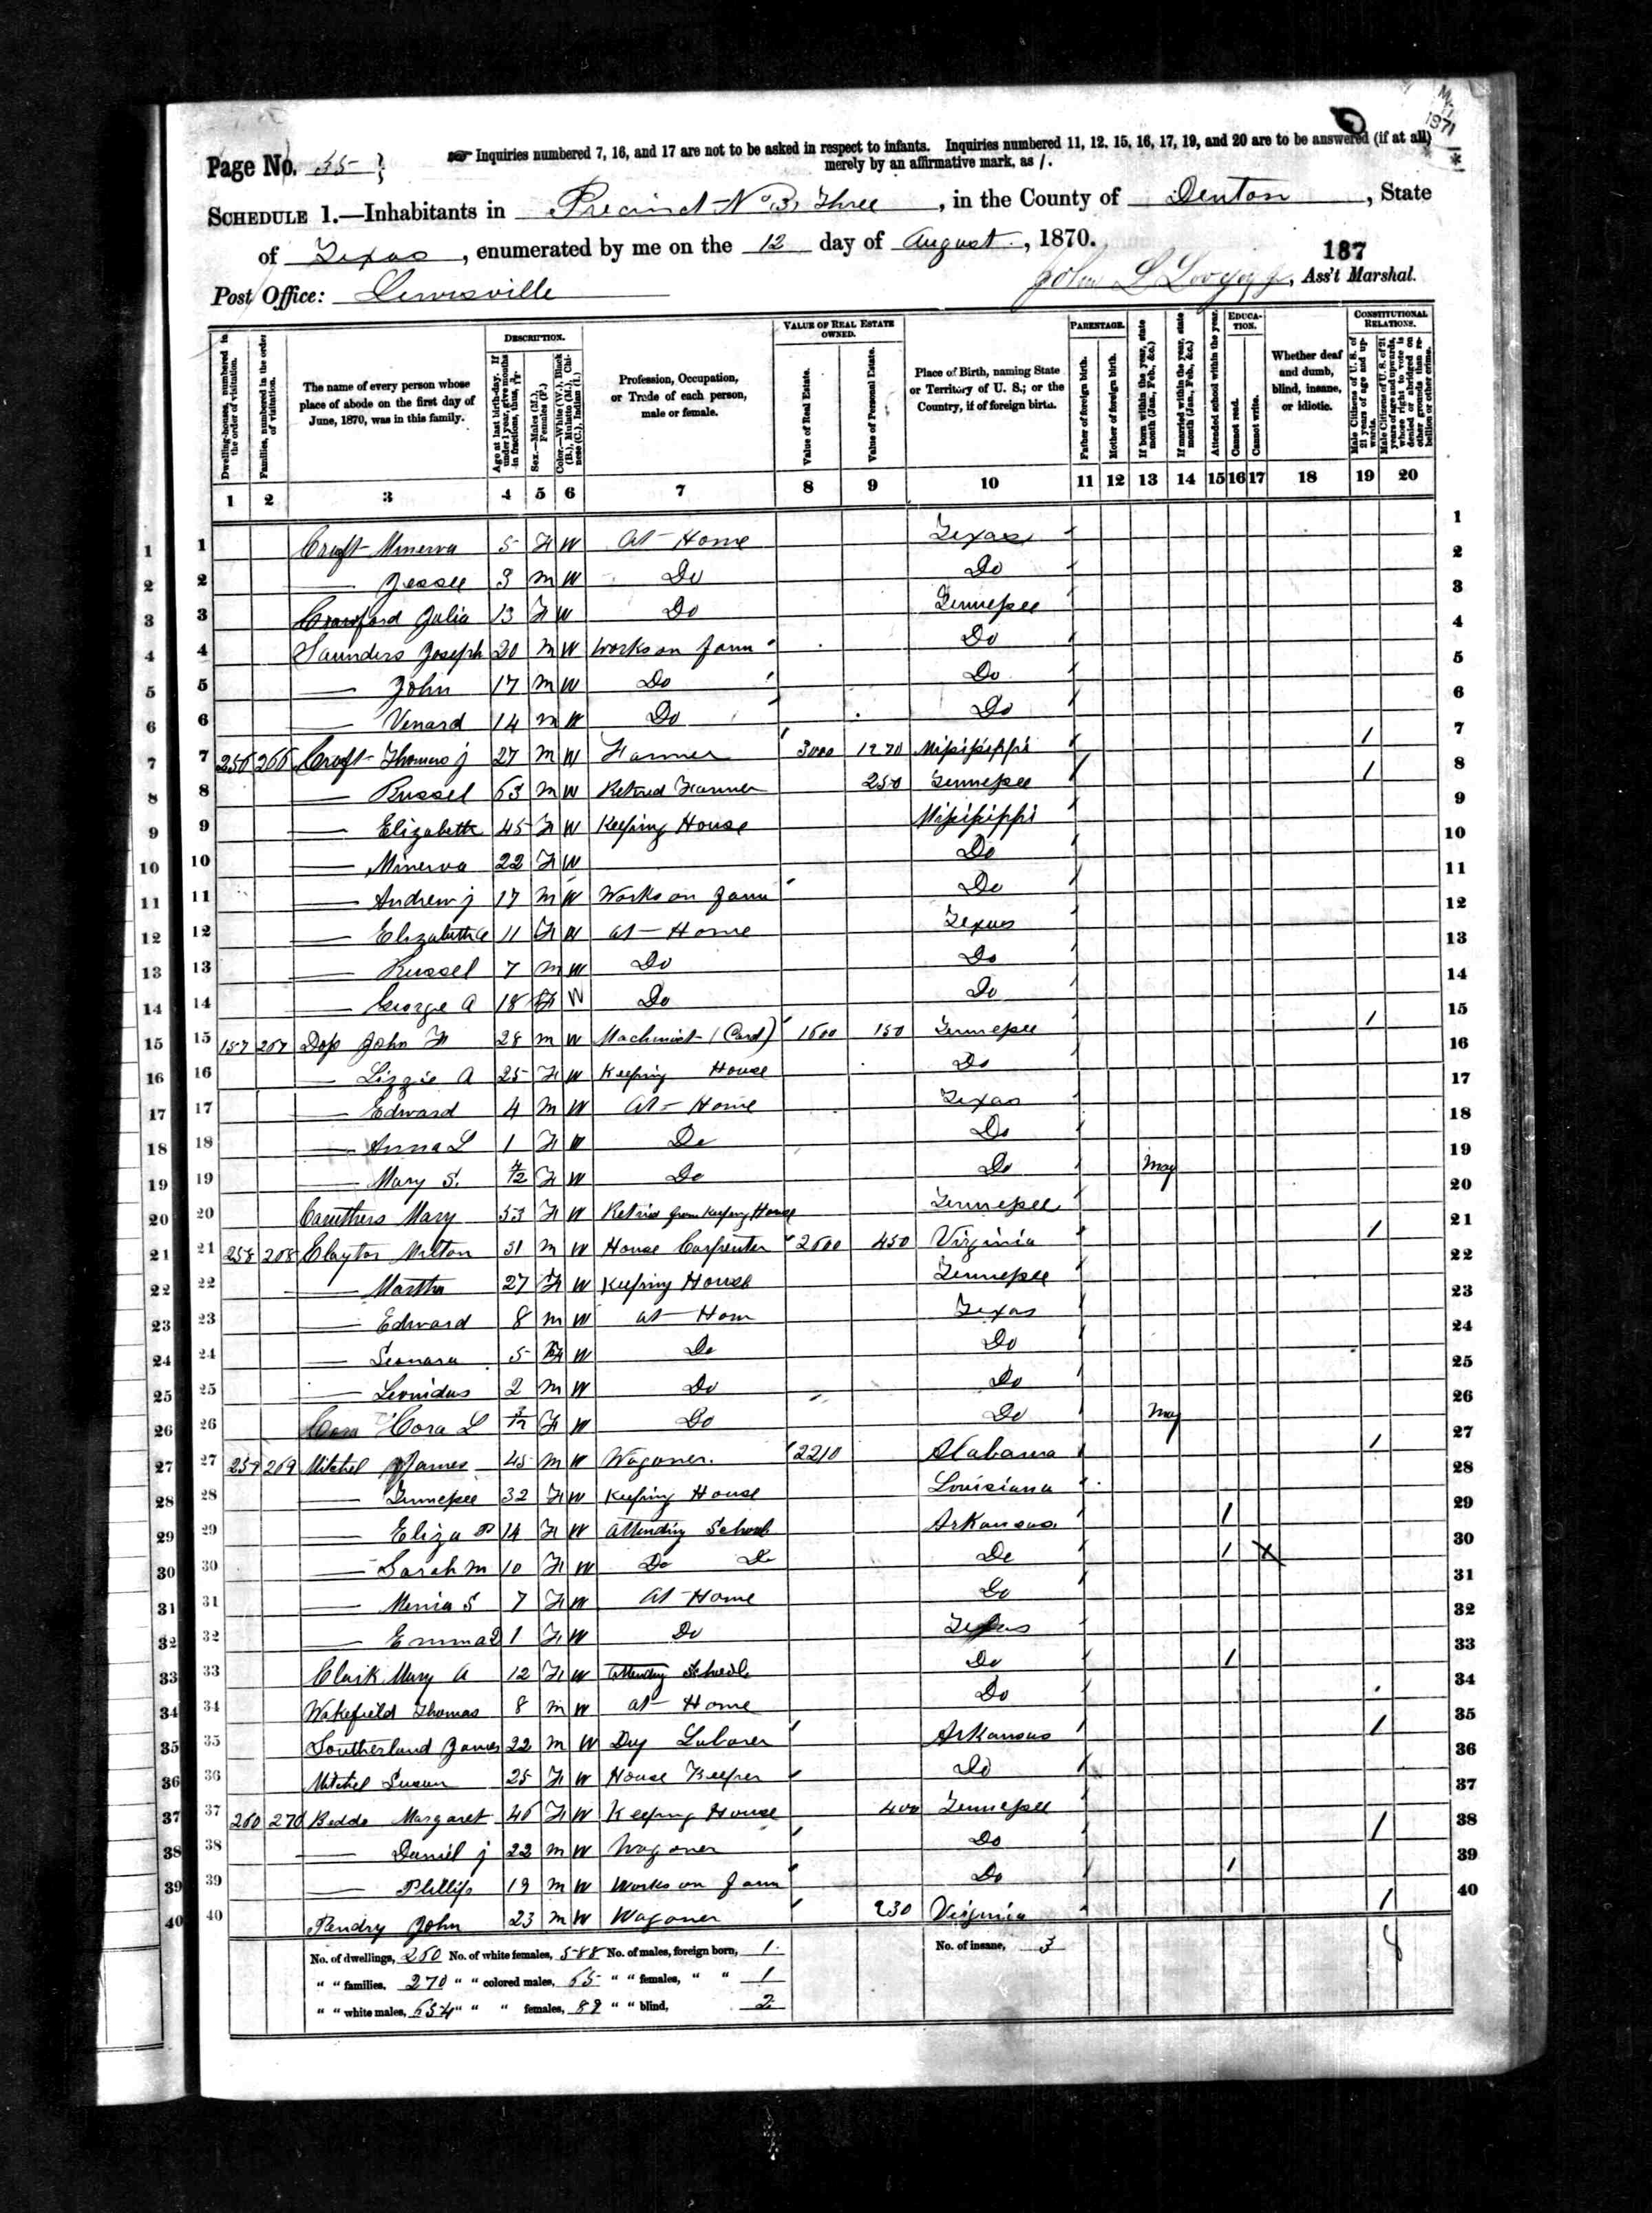 Page No. 35
Inquiries numbered 7, 16, and 17 are not to be asked in respect to infants. Inquiries numbered 11, 12, 15, 16, 17, 19, and 20 are to be answered (if at all)
merely by an affirmative mark, as /.
1971
SCHEDULE 1.—Inhabitants in Precinct No 3, Three, in the County of Denton, State
of Texas, enumerated by me on the 12 day of August, 1870.
187
Post Office: Lewisville
John L, Ass't Marshal.
Dwelling-houses, numbered in the order of visitation.
Families, numbered in the order of visitation.
The name of every person whose place of abode on the first day of June, 1870, was in this family.
DESCRIPTION.
Age at last birth-day. If under 1 year, give months in fractions, thus, 3/12
Sex.—Males (M.), Females (F.)
Color.—White (W.), Black (B.), Mulatto (M.), Chinese (C.), Indian (I.)
Profession, Occupation, or Trade of each person, male or female.
VALUE OF REAL ESTATE OWNED.
Value of Real Estate.
Value of Personal Estate.
Place of Birth, naming State or Territory of U. S.; or the Country, if of foreign birth.
PARENTAGE.
Father of foreign birth.
Mother of foreign birth.
If born within the year, state month (Jan., Feb., &c.)
If married within the year, state month (Jan., Feb., &c.)
Attended school within the year.
EDUCATION.
Cannot read.
Cannot write.
Whether deaf and dumb, blind, insane, or idiotic.
CONSTITUTIONAL RELATIONS.
Male Citizens of U. S. of 21 years of age and upwards.
Male Citizens of U. S. of 21 years of age and upwards, whose right to vote is denied or abridged on other grounds than rebellion or other crime.
1 2 3 4 5 6 7 8 9 10 11 12 13 14 15 16 17 18 19 20
1 Croft Minerva 5 F W At Home Texas 1
2 — Jessee 3 M W Do Do 2
3 Crawford Julia 13 F W Do Tennessee 3
4 Saunders Joseph 20 M W Works on farm Do 4
5 — John 17 M W Do Do 5
6 — Venard 14 M W Do Do 6
7 256 266 Croft Thomas J 27 M W Farmer 3000 1270 Mississippi / 7
8 — Russel 63 M W Retired Farmer 250 Tennessee / 8
9 — Elizabeth 45 F W Keeping House Mississippi 9
10 — Minerva 22 F W Do 10
11 — Andrew J 17 M W Works on farm Do 11
12 — Elizabeth A 11 F W At Home Texas 12
13 — Russel 7 M W Do Do 13
14 — George A 18 F W Do Do 14
15 157 267 John F 28 M W Machinist (Card) 1600 150 Tennessee / 15
16 — Lizzie A 25 F W Keeping House Do 16
17 — Edward 4 M W At Home Texas 17
18 — Anna L 1 F W Do Do 18
19 — Mary S. F W Do Do May 19
20 Caruthers Mary 53 F W Retired from Keeping House Tennessee 20
21 258 268 Clayton Milton 31 M W House Carpenter 2600 450 Virginia / 21
22 — Martha 27 F W Keeping House Tennessee 22
23 — Edward 8 M W At Hom Texas 23
24 — Leonara 5 F W Do Do 24
25 — Leonidus 2 M W Do Do 25
26 Cora L 3/12 F W Do Do May 26
27 259 269 Mitchel James 45 M W Wagoner. 2210 Alabama / 27
28 — Tennessee 32 F W Keeping House Louisiana 28
29 — Eliza P 14 F W Attending School Arkansas / 29
30 — Sarah M 10 F W Do Do Do / X 30
31 — S 7 F W At Home Do 31
32 — Emma D 1 F W Do Texas 32
33 Clark Mary A 12 F W Attending School Do / 33
34 Wakefield Thomas 8 M W At Home Do 34
35 Southerland James 22 M W Day Laborer Arkansas / 35
36 Mitchel Susan 25 F W House Keeper Do 36
37 260 270 Beddo Margaret 46 F W Keeping House 400 Tennessee 37
38 — Daniel J 22 M W Wagoner Do / 38
39 — Phillip 19 M W Works on farm Do / 39
40 Pendry John 23 M W Wagoner 230 Virginia / 40
No. of dwellings, 260 No. of white females, 588 No. of males, foreign born, 1. No. of insane, 3
" " families, 270 " " colored males, 65 " " females, " " 1
" " white males, 654 " " " females, 89 " " blind, 2